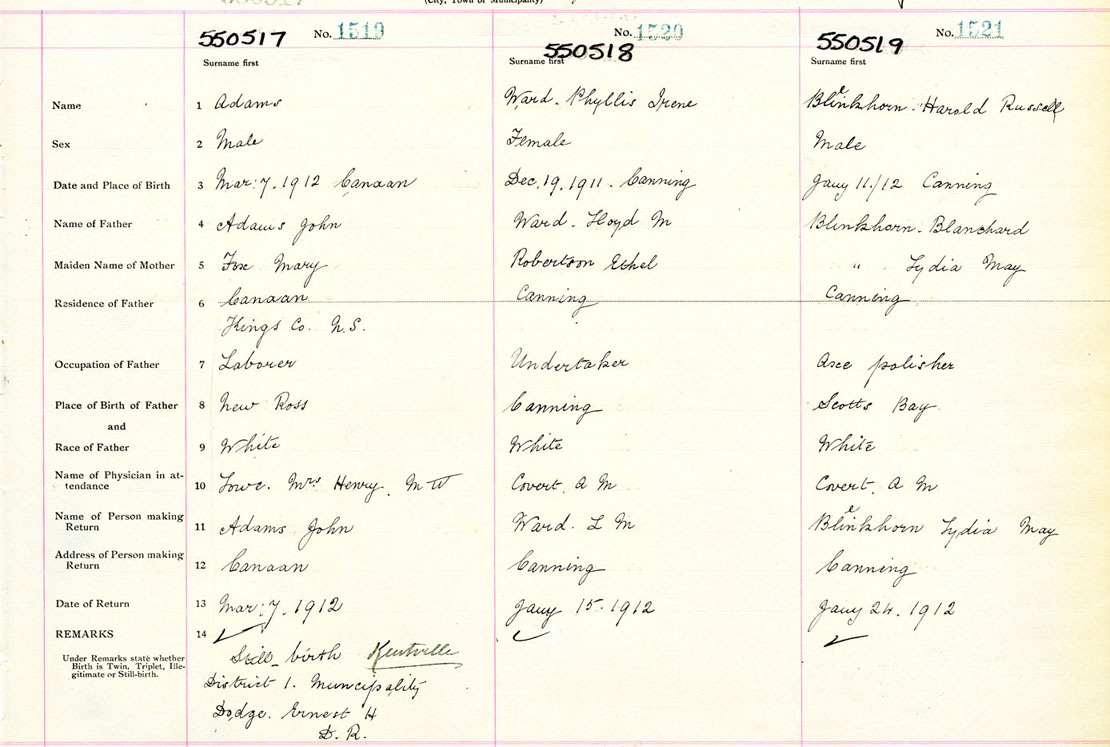 (City, Town or Municipality)
550517 No. 1519
550518 No. 1520
550519 No. 1521
Surname first Surname first Surname first
Name 1 Adams Ward. Phyllis Irene Blenkhorn. Harold Russell
Sex 2 Male Female Male
Date and Place of Birth 3 Mar: 7. 1912 Canaan Dec. 19. 1911. Canning Jany 11./12 Canning
Name of Father 4 Adams John Ward. Lloyd M Blinkhorn. Blanchard
Maiden Name of Mother 5 Fox Mary Robertson Ethel " Lydia May
Residence of Father 6 Canaan Canning Canning
Kings Co. N.S.
Occupation of Father 7 Laborer Undertaker Axe polisher
Place of Birth of Father 8 New Ross Canning Scotts Bay
and
Race of Father 9 White White White
Name of Physician in at-
tendance 10 Lowe. Mrs Henry. M W Covert. A M Covert. A M
Name of Person making
Return 11 Adams John Ward. L M Blenkhorn Lydia May
Address of Person making
Return 12 Canaan Canning Canning
Date of Return 13 Mar: 7. 1912 Jany 15. 1912 Jany 24. 1912
REMARKS 14 ✓ ✓ ✓
Under Remarks state whether
Birth is Twin, Triplet, Ille-
gitimate or Still-birth.
Still-birth Kentville
District 1. Muncipality
Dodge. Ernest H
D. R.